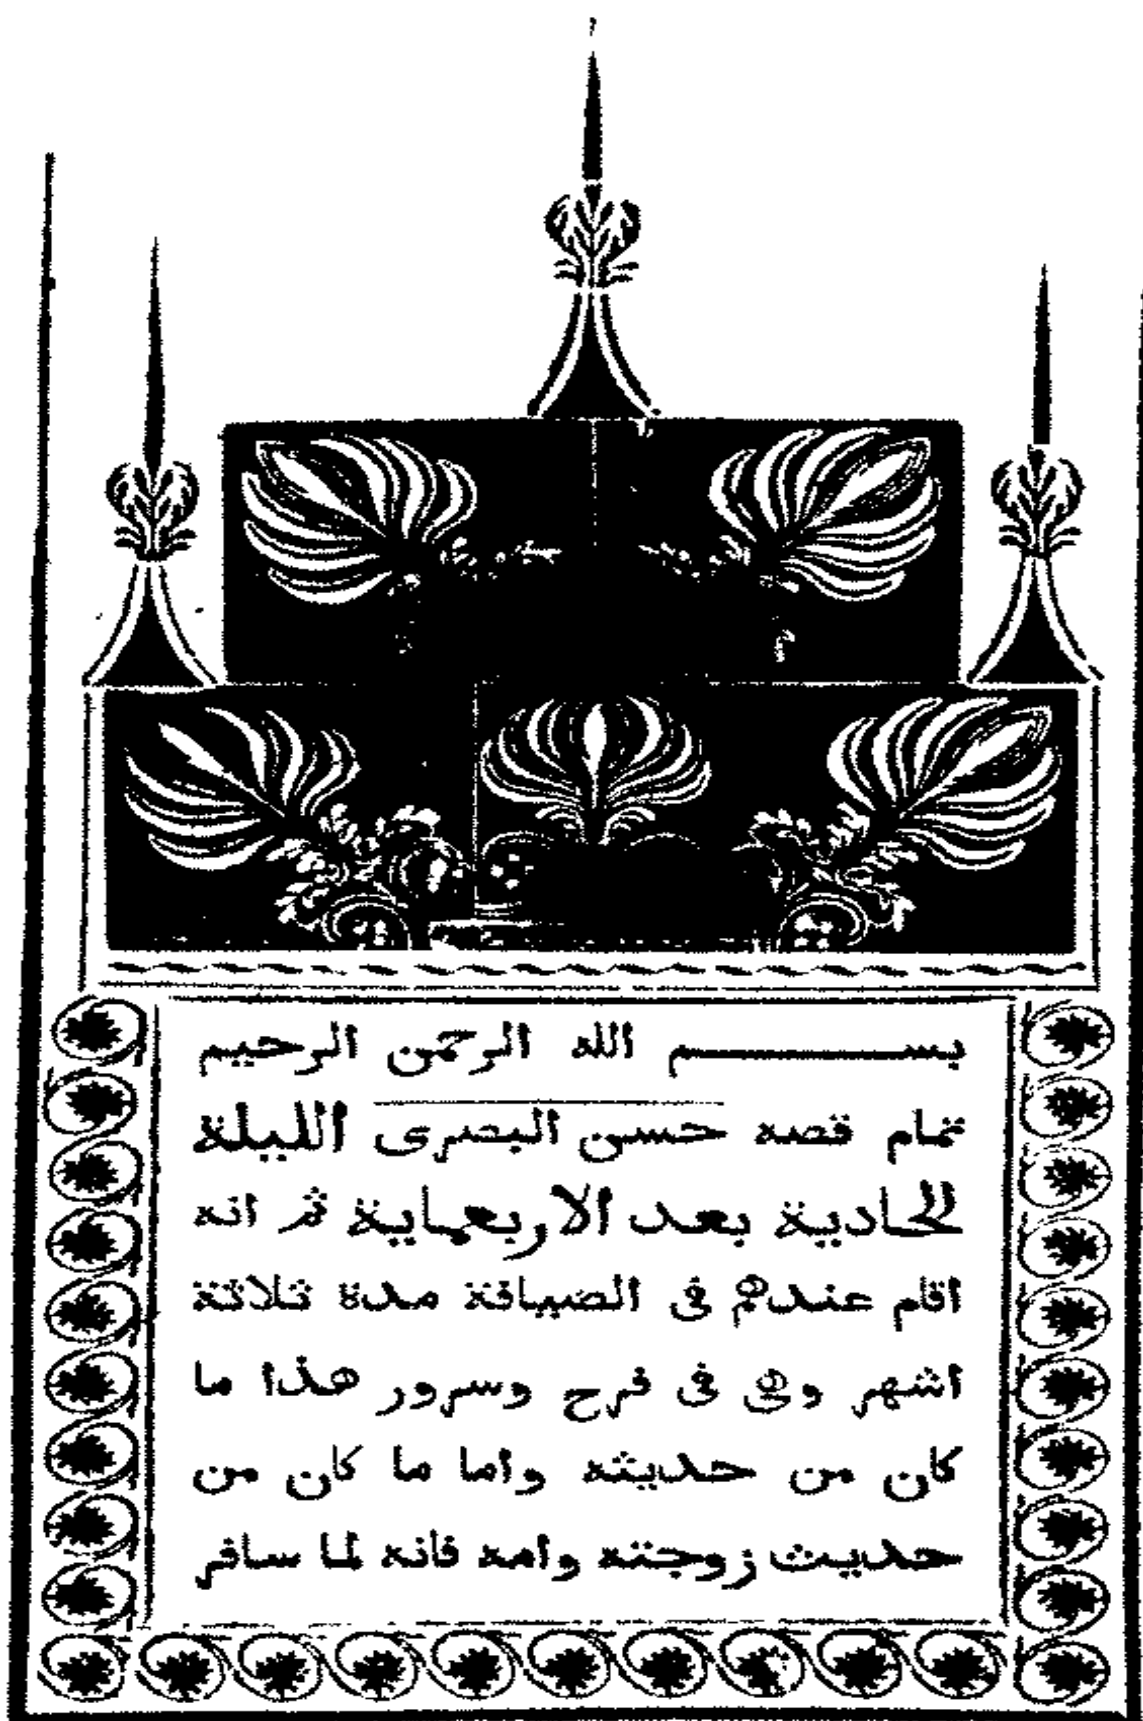 بســـــــم الله الرحمن الرحيم
تمام قصه حسن البصرى الليلة
الحادية بعد الاربعماية ثم انه
اقام عندهم فى الضيافة مدة ثلاثة
اشهر وهى فى فرح وسرور هذا ما
كان من حديثه واما ما كان من
حديث زوجته وامه فانه لما سافر